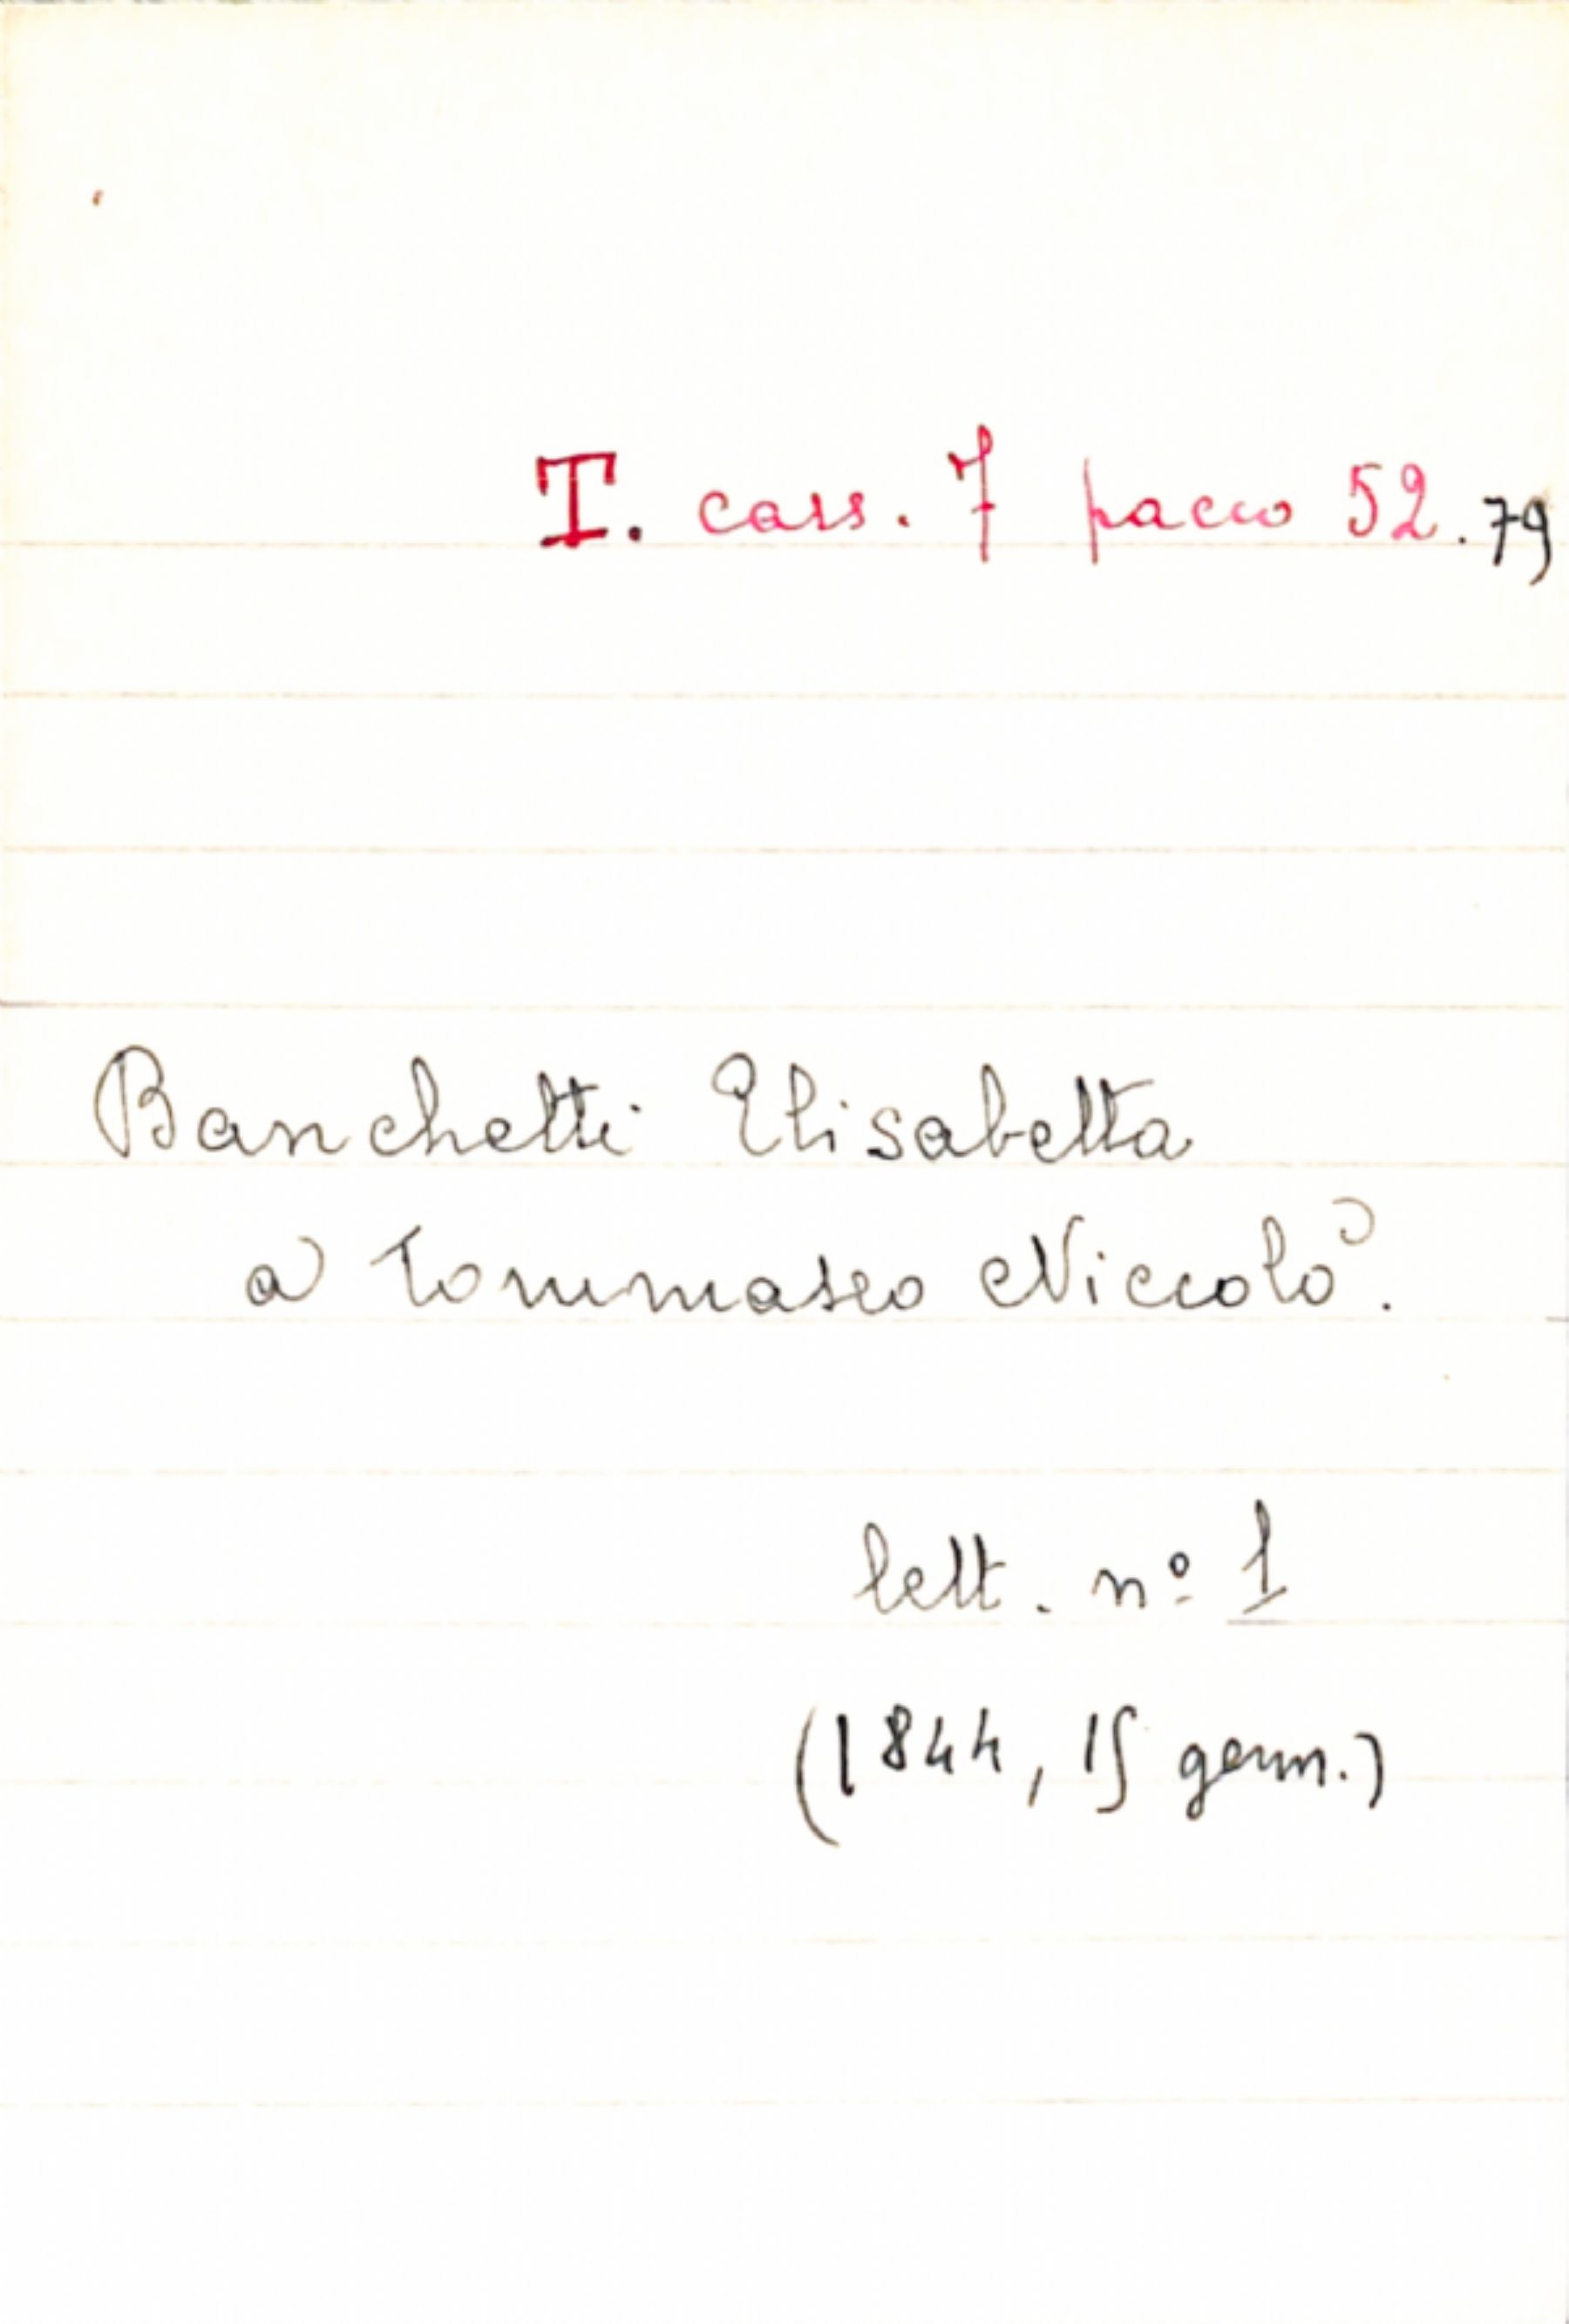 T. cass. 7 pacco 52.79
Banchetti Elisabetta
a Tommaseo Niccolò.
lett. nº 1
(1844, 15 genn.)